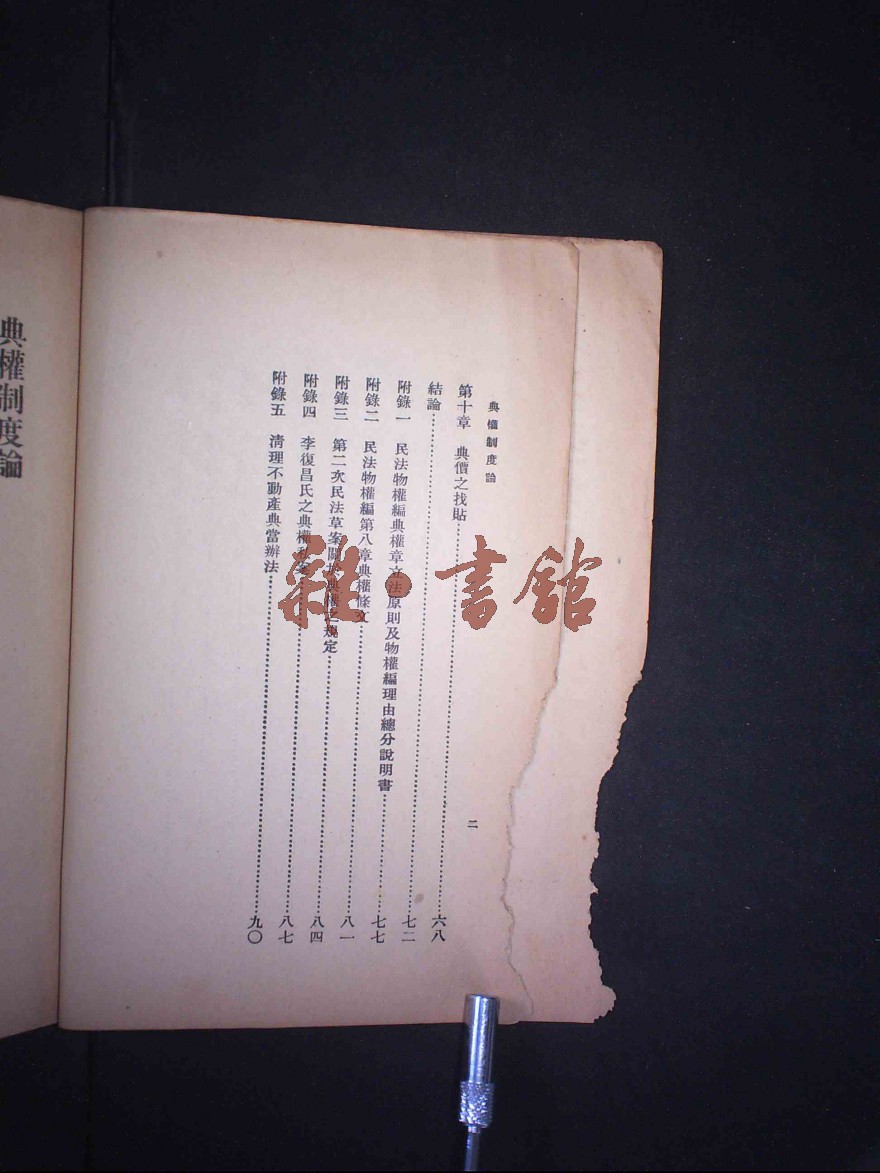 典權制度論
二
第十章　典價之找貼……六八
結論……七二
附錄一　民法物權編典權章立法原則及物權編理由總分說明書……七七
附錄二　民法物權編第八章典權條文……八一
附錄三　第二次民法草案關於典權之規定……八四
附錄四　李復昌氏之典權私案……八七
附錄五　清理不動產典當辦法……九〇
典權制度論
雜·書館